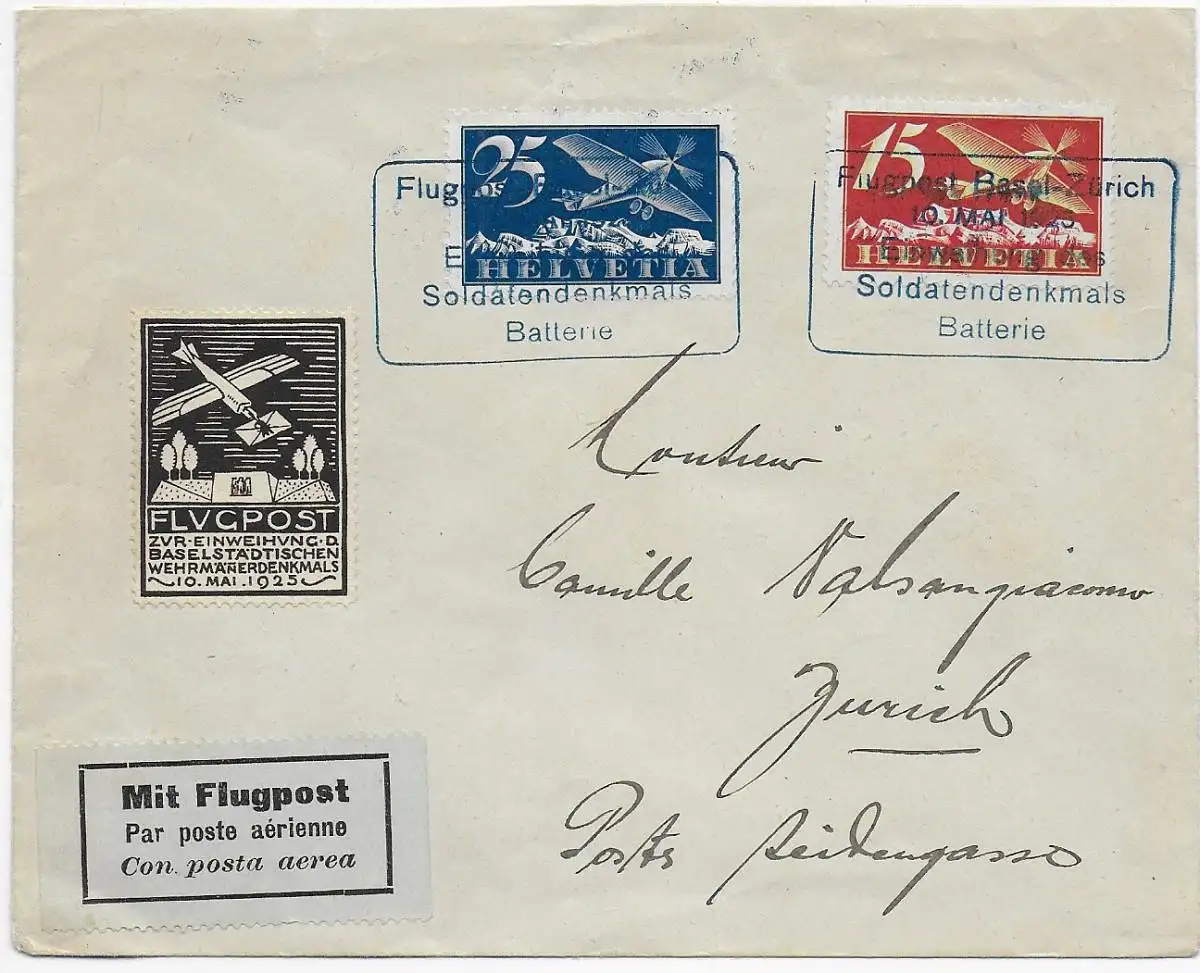 25
HELVETIA
15
HELVETIA
Soldatendenkmals
Batterie
Flugpost Basel-Zürich
10. MAI 1925
Einweihung des
Soldatendenkmals
Batterie
FLVGPOST
ZVR·EINWEIHVNG·D
BASELSTÄDTISCHEN
WEHRMAÑERDENKMALS
10. MAI. 1925
Monsieur
Camille Valsangiacomo
Zurich
Poste Seidengasse
Mit Flugpost
Par poste aérienne
Con posta aerea